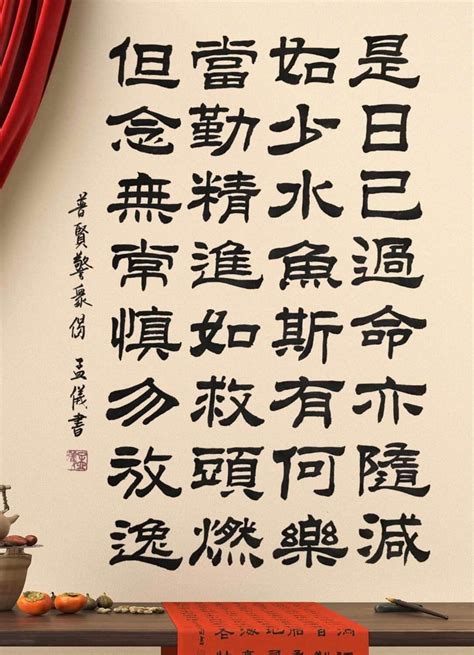 是日已過命亦隨減
如少水魚斯有何樂
當勤精進如救頭燃
但念無常慎勿放逸
普賢警眾偈 孟儀書